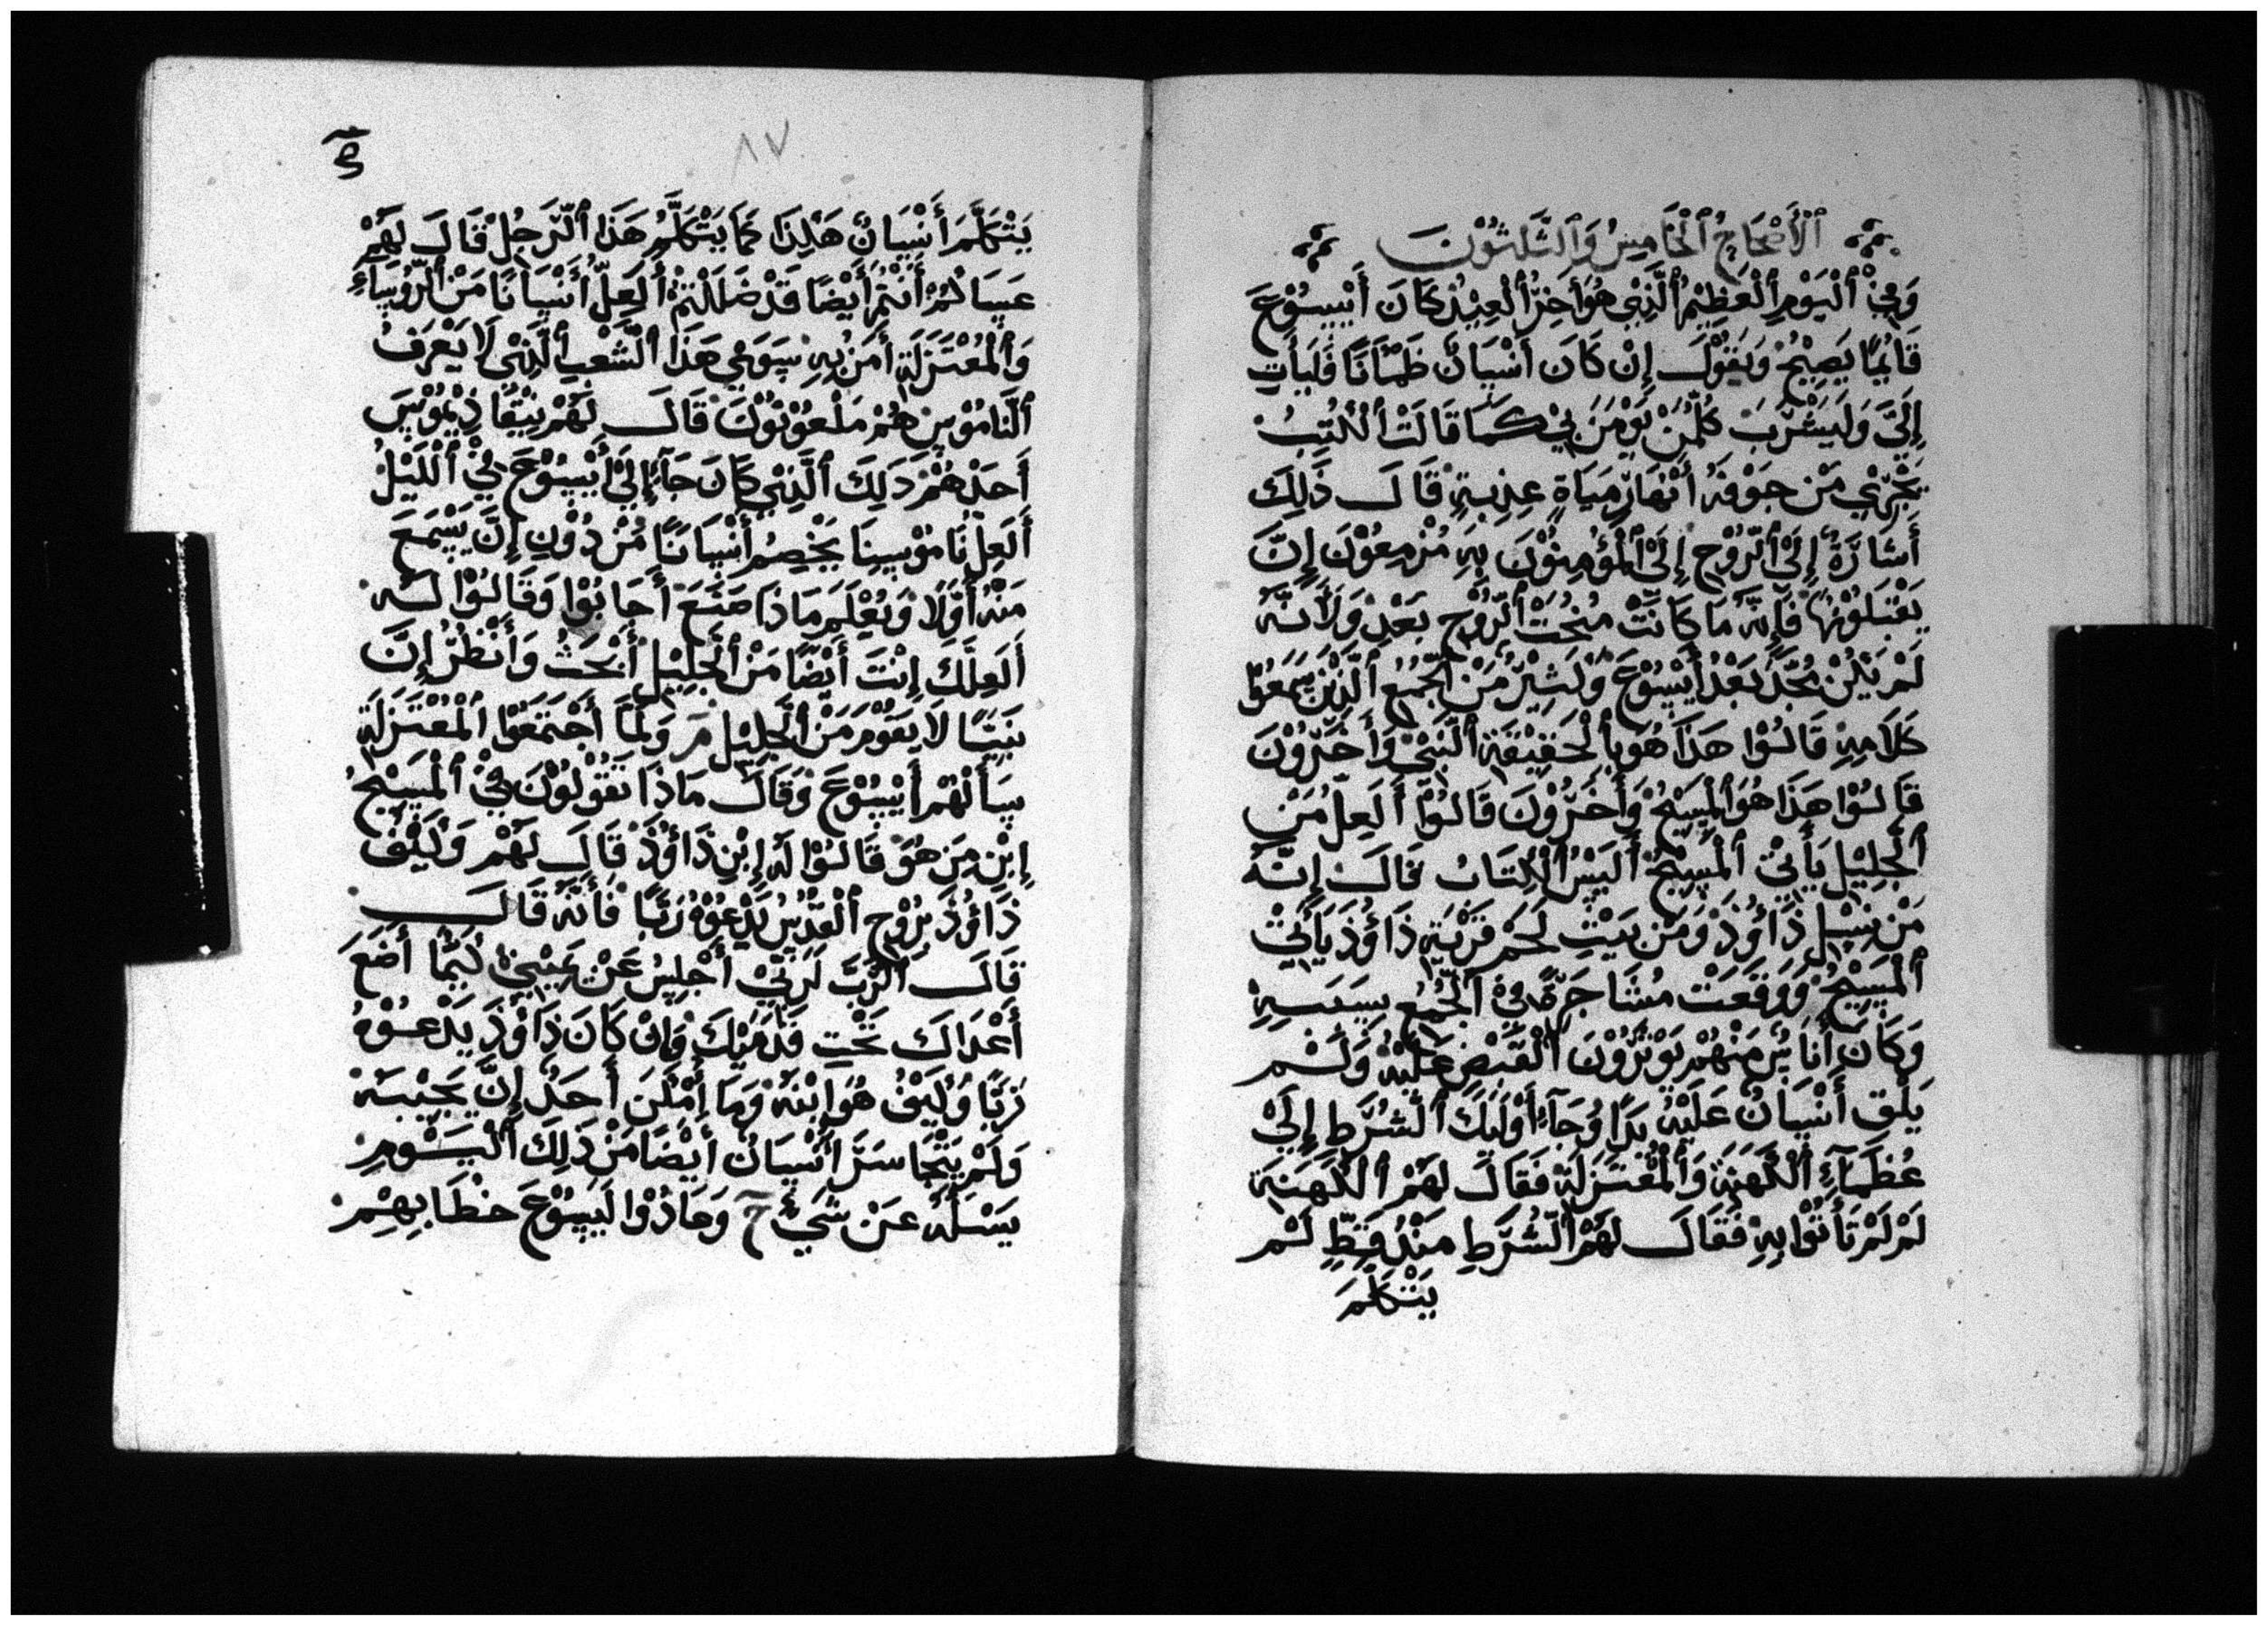 اَلْأَصْحَاحُ اَلْخَامِسُ وَاَلثَّلٰثُوْنَ
وَفِيْ اَلْيَوْمِ اَلْعَظِيْمُ اَلَّذِيْ هُوَ أَخِرُ اَلْعِيْدِ كَانَ أَيْسُوْعَ
قَائِمًا يَصِيْحُ وَيَقُوْلَ إِنْ كَانَ أَنْسَانٌ ظَمْأَنًا فَلَيَأْتِ
إِلَيَّ وَلَيَشْرَبَ كُلُّمَنْ يَوْمَنَ بِيْ كَمَا قَالَتْ اَلْكُتِبُ
تَجْرِيْ مَنْ جَوْفِهِ أَنْهَارَ مِيَاةٍ عِذِبَةٍ قَالَ ذَلِكَ
أَشَارَةً إِلَىْ اَلرُّوْحِ إِلَىْ اَلْمُؤْمِنُوْنَ بِهِ مُزْمِعُوْنَ إِنَّ
يَقْبَلُوْنَهَا فَأِنَّهُ مَا كَانَتْ مُنِحَتْ اَلرُّوْحِ بَعْدْ وَلَأَنَّهُ
لَمْ يَكُنْ مُجِّدَ بَعْدُ أَيْسُوْعَ وَكَثِيْرُ مَنْ اَلْجُمُعِ اَلَّذِيْنَ سَمَعُوْا
كَلَامِهِ قَالُوْا هَذَا هُوَ بِأَلْحَقِيْقَةِ اَلنَّبِيْ وَأَخَرُوْنَ
قَالُوْا هَذَا هُوَ اَلْمَسِيْحُ وَأَخَرُوْنَ قَالُوْا أَلَعِلَّ مَنْ
اَلْجَلِيْلِ يَأْتِيْ اَلْمَسِيْحُ أَلَيْسَ اَلْكِتَابُ قَالَ إِنَّهُ
مَنْ نَسِلِ ذَاؤُذْ وَمَنْ بَيْتِ لَحْمَ قَرْيَةِ ذَاؤُذَ يَأْتِيْ
اَلْمَسِيْحُ وَوَقَعَتْ مُشَاجَرَةٌ فِيْ اَلْجُمُعِ بِسَبَبِهِ
وَكَانَ أُنَاسٌ مَنْهُمْ يَوْثِرُوْنَ اَلْقَبْضِ عَلَيْهُ وَلَمْ
يَلْقِ أَنْسَانُ عَلَيْهُ يَدًا وُجَآءَ أُوْلَئِكَ اَلشُرَّطِ إِلَىْ
عُظَمَآءِ اَلْكَهَنَةِ وَاَلْمُعْتَزَلَةِ فَقَالَ لَهُمْ اَلْكَهَنَةِ
لِمْ لَمْ تَأْتُوْا بِهِ فَقَالَ لَهُمْ اَلشُّرَّطِ مَنْذُ قَطِّ لَمْ
يَتْكَلَّمَ
٨٧
يَتْكَلَّمَ أَنْسَانٌ هَكِذَا كَمَا يَتْكَلَّمُ هَذَا اَلرَّجُلِ قَالَ لَهُمْ
عَسَاكُمْ أَنْتُمْ أَيْضًا قَدْ ضَلَلْتُمْ أَلَعِلَّ أَنْسَانًا مَنْ اَلرُّوسَآءِ
وَاَلْمُعْتَزَلَةِ أَمَنُ بِهِ سَوَىْ هَذَا اَلشَّعْبِ اَلَّذِيْ لَا يَعْرَفُ
اَلنَّامُوْسِ هُمْ مَلْعُوْنُوْنَ قَالَ لَهُمْ نِيْقَاذِيْمُوْسَ
أَحَدْهُمْ ذَلِكَ اَلَّذِيْ كَانَ جَآءَ إِلَىْ أَيْسُوْعَ فِيْ اَلْلَيْلُ
أَلَعِلَ نَامُوْسِنَا يَخْصِمُ أَنْسَانًا مُنْ دُوْنِ إِنَّ يَسْمَعَ
مَنْهُ أَوَّلًا وَيُعْلَمَ مَاذَا صَنَعَ أَجَابُوْا وَقَالُوْا لَهُ
أَلَعِلَّكَ إِنْتَ أَيْضًا مَنْ اَلْجَلِيْلِ أَبْحَثْ وَأَنْظُرْ إِنَّ
نَبِيًا لَا يَقُوْمَ مَنْ اَلْجَلِيْلِ مَ وَلَمَّا أَجْتَمَعُوْا اَلْمُعْتَزَلَةِ
سَأَلَهُمْ أَيْسُوْعَ وَقَالَ مَاذَا تَقُوْلُوْنَ فِيْ اَلْمَسِيْحُ
إِبْنِ مَنْ هُوَ قَالُوْا لَهُ إِبْنِ ذَاؤُذْ قَالَ لَهُمْ وَكَيْفُ
ذَاؤُذْ بِرُوْحِ اَلْقُدُسِ يَدْعُوْهُ رَبًّا فَأَنَّهُ قَالَ
قَالَ اَلْرَّبَّ لَرَبِّيْ أَجْلِسْ عَنْ يَمِيْنِيْ كَيْمَا أَضَعَ
أَعْدَاكَ تَحْتِ قَدَمَيْكَ وَإِنْ كَانَ ذَاؤُذَ يَدْعُوْهُ
رَبًّا وَكَيْفُ هُوَ إِبْنَهُ وَمَا أَمْكَنَ أَحَدٌ إِنَّ يَجِيْبَهُ
وَلَمْ يَتْجَاسَرَ أَنْسَانٌ أَيْضًا مَنْ ذَلِكَ اَلْيَوْمِ
يَسْلَهُ عَنْ شَيْءٍ وَحَاذُوْا لَيَسُوْعَ خِطَابِهِمْ